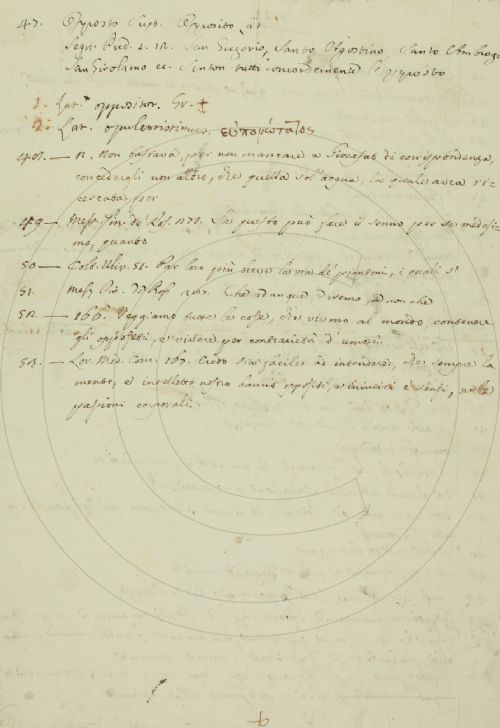 47. Opposto Sust. Opposito Add.
Segn. Pred. 2. 12. San Gregorio, Santo Agostino Santo Ambrogio
San Girolamo ec. Senton tutti concordemente l'opposto
1. Lat. oppositor. Gr. +
2. Lat. opulentissimus. εὐπορώτατος
48. — n. Non bastava, per non mancare a Giosafat di corrispondenza,
concedergli non altro, che quella sol' acqua, la quale avea ri=
cercata per
49 — Mess. Pin. de' Ros. 178. Se questo può fare il senno per se medesi=
mo, quando
50 — Coll. Uliv. 51. Par loro più breve la via de'
51. Mess. Pin. de' Ros. 267. Che adunque diremo, a
52 — 166. Veggiamo tutte le cose, che vivono al mondo contenere
gli oppositi, e vivere per contrarietà d'umori.
53. — Lor. Med. Com. 167. Credo sia facile ad intendere, che sempre la
mente, e intelletto nostro hanno oppositi e inimici i sensi, e le
passioni corporali.